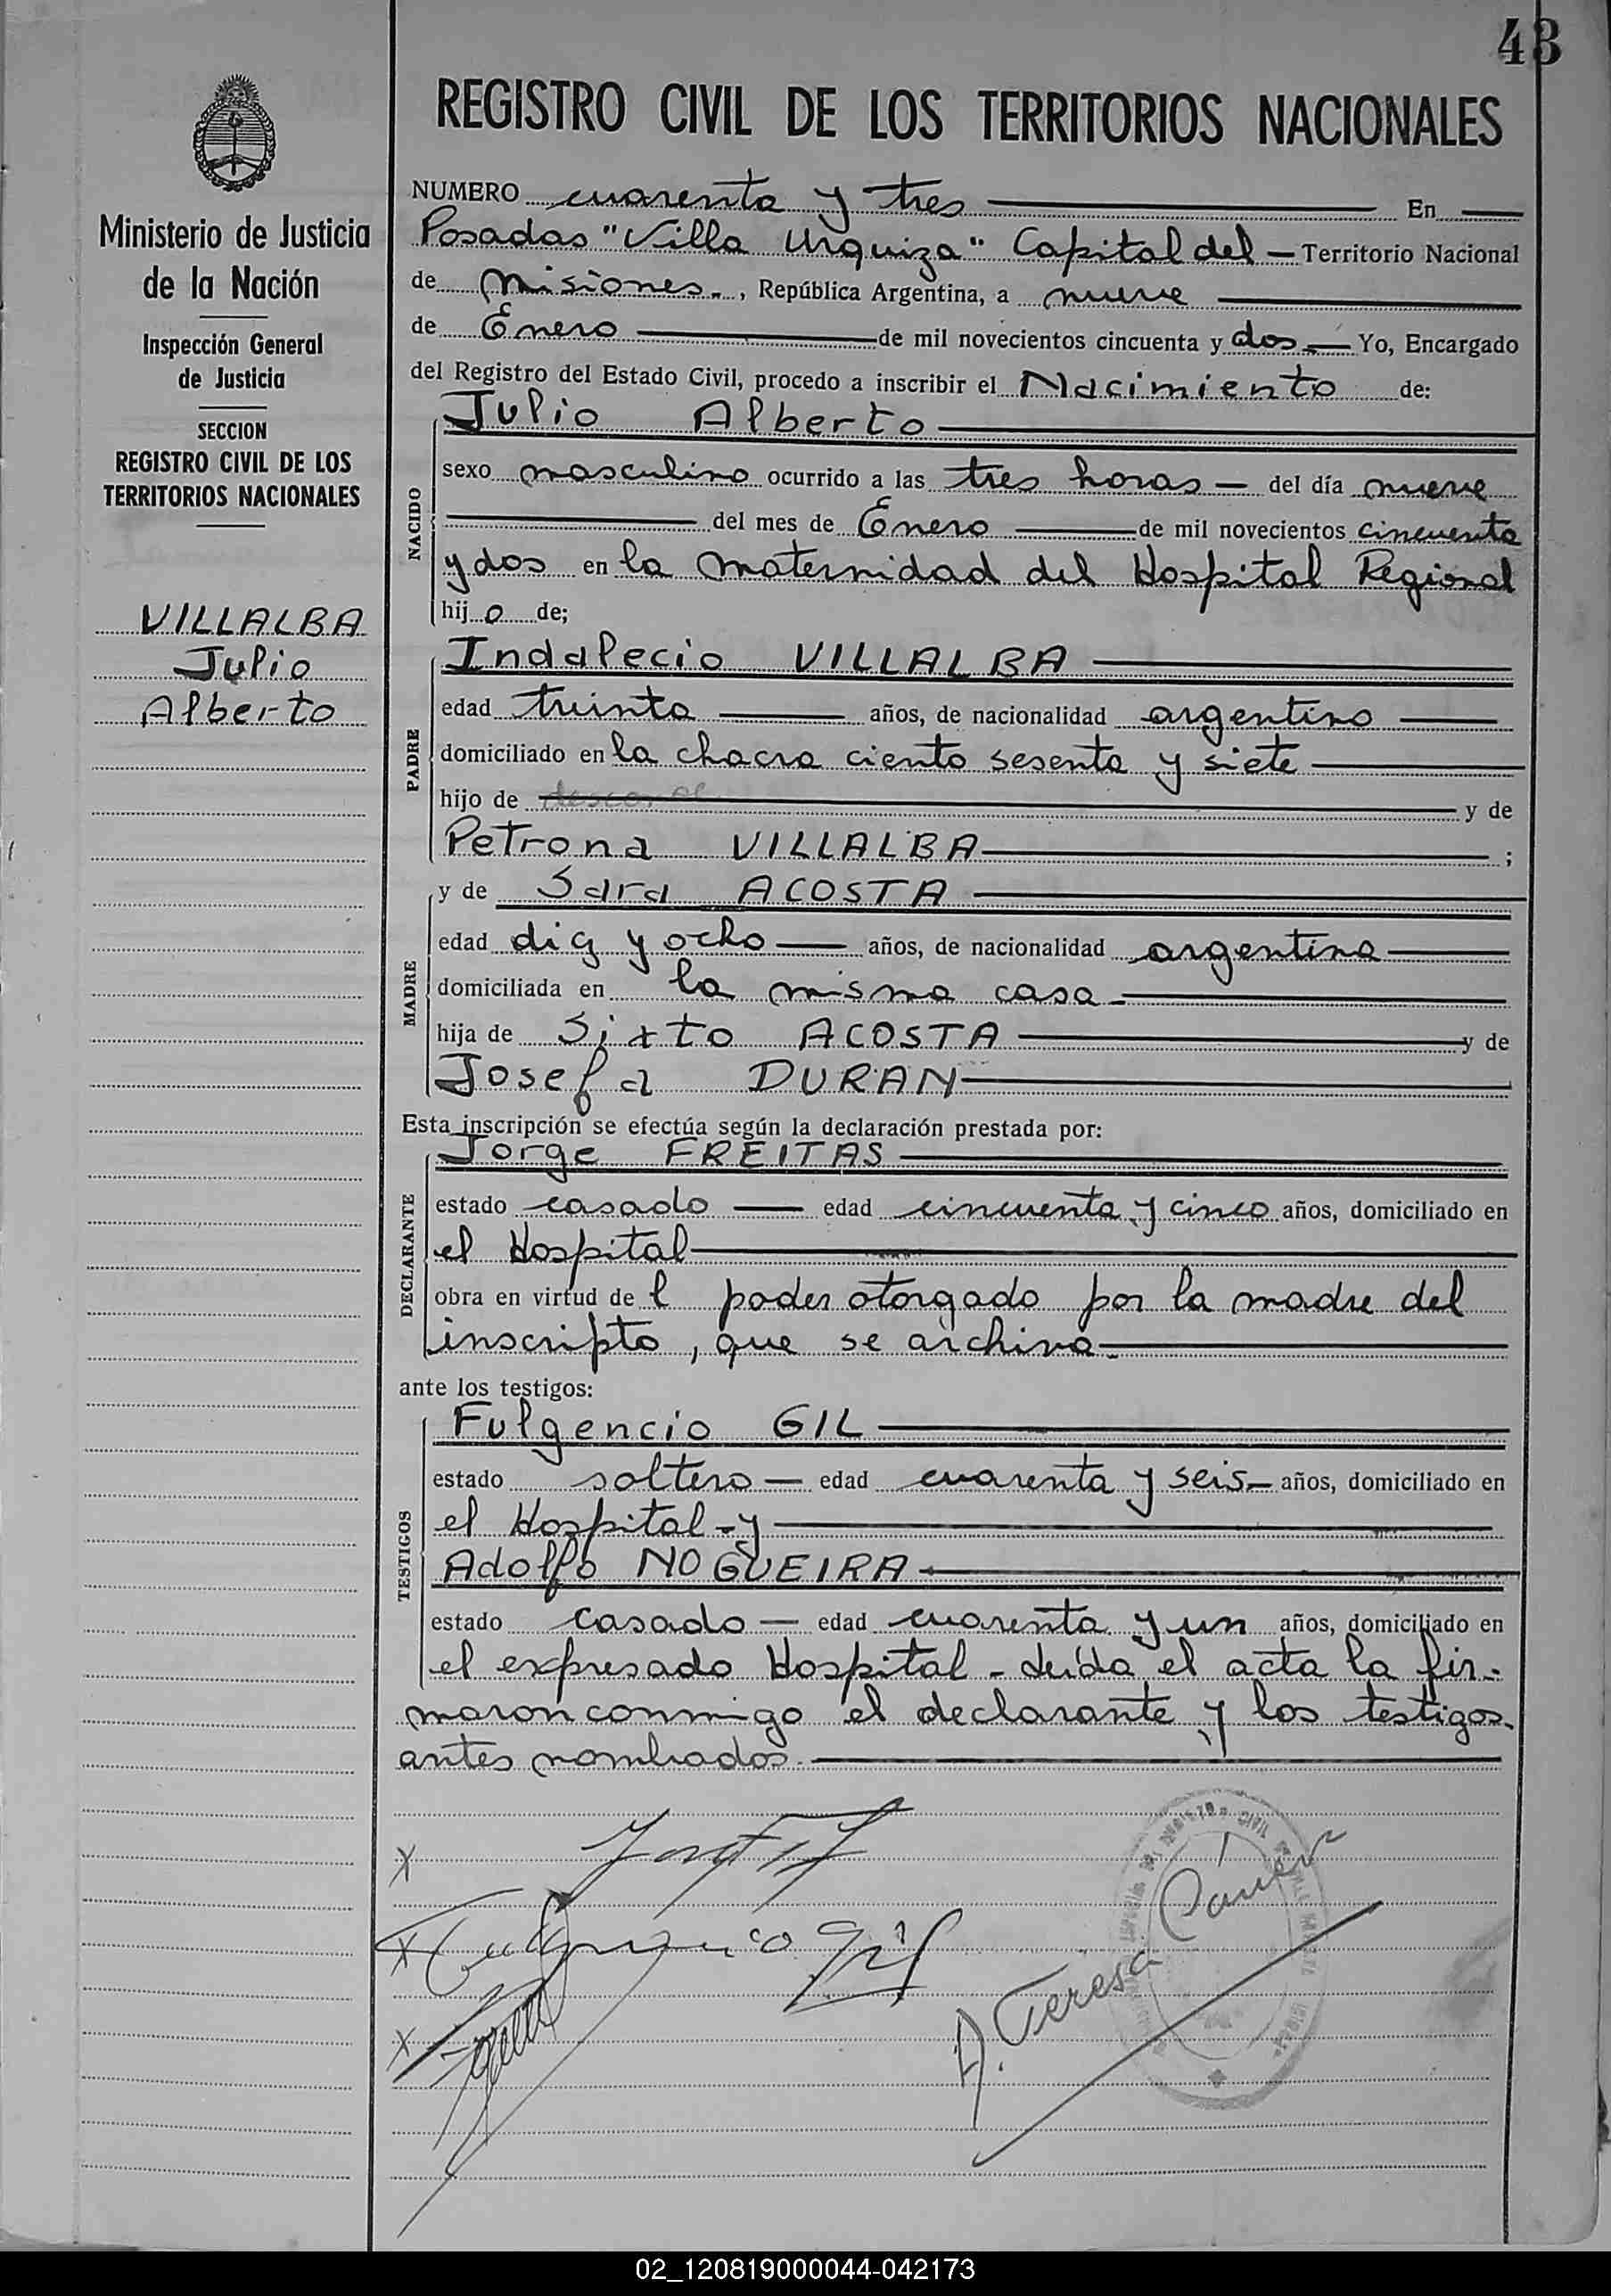 43
REGISTRO CIVIL DE LOS TERRITORIOS NACIONALES
Ministerio de Justicia
de la Nación
Inspección General
de Justicia
SECCION
REGISTRO CIVIL DE LOS
TERRITORIOS NACIONALES
VILLALBA
Julio
Alberto
NUMERO cuarenta y tres En
Posadas "Villa Urquiza" Capital del Territorio Nacional
de Misiones, República Argentina, a nueve
de Enero de mil novecientos cincuenta y dos. Yo, Encargado
del Registro del Estado Civil, procedo a inscribir el Nacimiento de:
Julio Alberto
NACIDO
sexo masculino ocurrido a las tres horas del día nueve
del mes de Enero de mil novecientos cincuenta
y dos en la maternidad del Hospital Regional
hijo de;
Indalecio VILLALBA
PADRE
edad treinta años, de nacionalidad argentino
domiciliado en la chacra ciento sesenta y siete
hijo de y de
Petrona VILLALBA ;
y de Sara ACOSTA
MADRE
edad diez y ocho años, de nacionalidad argentina
domiciliada en la misma casa
hija de Sixto ACOSTA y de
Josefa DURAN
Esta inscripción se efectúa según la declaración prestada por:
Jorge FREITAS
DECLARANTE
estado casado edad cincuenta y cinco años, domiciliado en
el Hospital
obra en virtud del poder otorgado por la madre del
inscripto, que se archiva.
ante los testigos:
Fulgencio GIL
TESTIGOS
estado soltero edad cuarenta y seis años, domiciliado en
el Hospital - y
Adolfo NOGUEIRA
estado casado edad cuarenta y un años, domiciliado en
el expresado Hospital - Leída el acta la fir-
maron conmigo el declarante y los testigos
antes nombrados.
X
X Fulgencio Gil
X
A. Teresa
02_120819000044-042173